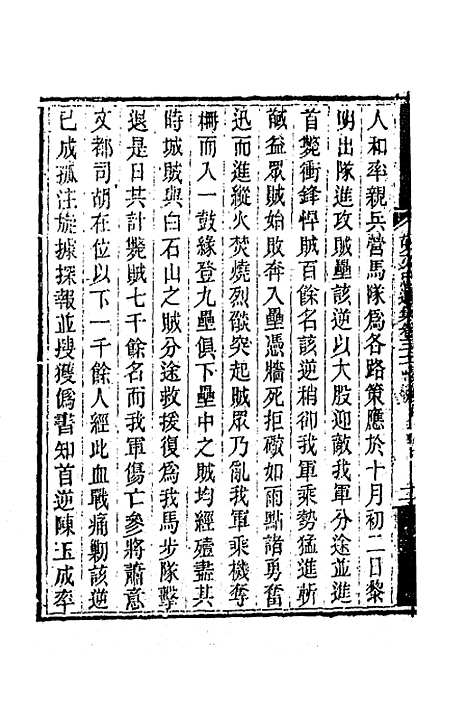 人和率親兵營馬隊爲各路策應於十月初二日黎
明出隊進攻賊壘該逆以大股迎敵我軍分途並進
首斃衝鋒悍賊百餘名該逆稍卻我軍乘勢猛進斬
馘益眾賊始敗奔入壘憑牆死拒礮如雨點諸勇奮
迅而進縱火焚燒烈燄突起賊眾乃亂我軍乘機奪
柵而入一鼓緣登九壘俱下壘中之賊均經殪盡其
時城賊與白石山之賊分途救援復爲我馬步隊擊
退是日共計斃賊七千餘名而我軍傷亡參將蕭意
文都司胡在位以下一千餘人經此血戰痛勦該逆
已成孤注旋據探報並搜獲僞書知首逆陳玉成率